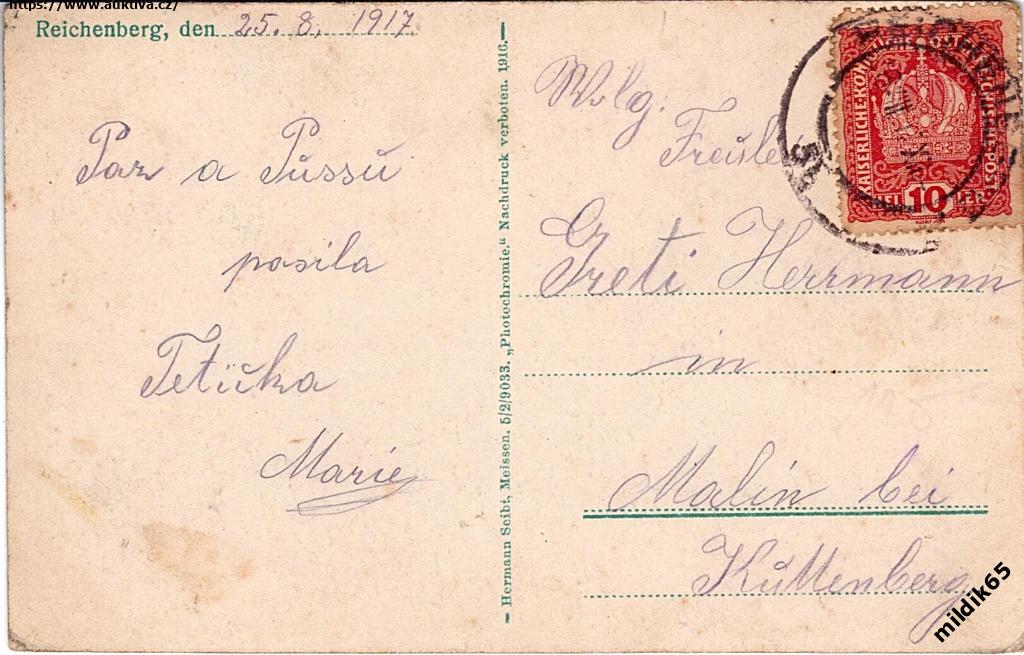 https://www.auktiva.cz/
Reichenberg, den 25. 8. 1917
Par a Pussu
posila
Tetička
Marie
Hermann Seibt, Meissen. 5/2/9033. „Photochromie.“ Nachdruck verboten. 1916.
Wolg.
Freulein
Greti Herrmann
in
Malin bei
Kuttenberg
KAISERLICHE KÖNIGLICHE ÖSTERREICHISCHE POST
HELLER
10
mildik65